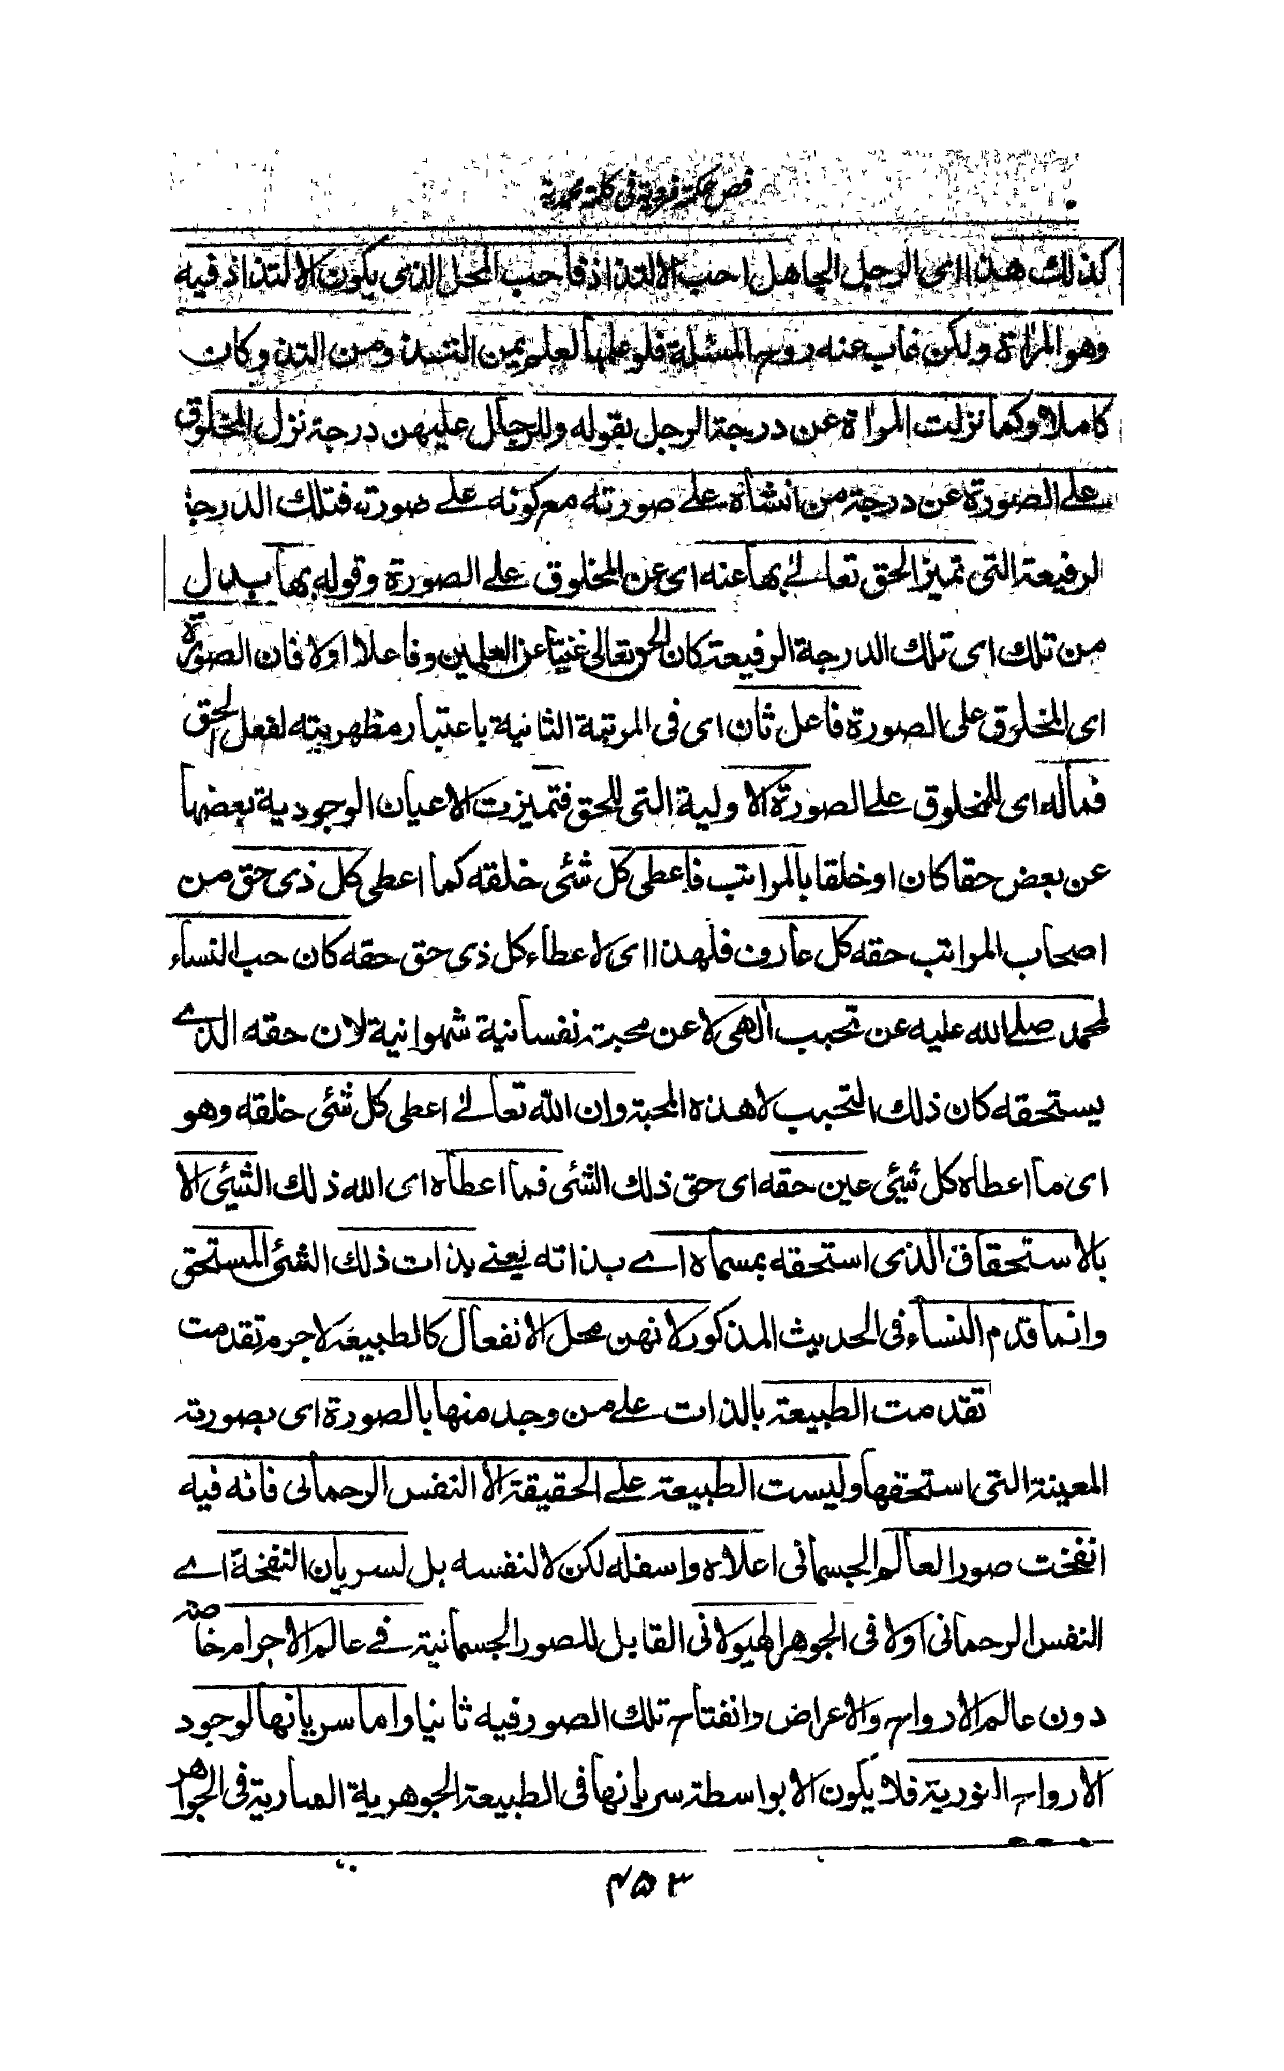 فص حكمة فردية فى كلمة محمدية
كذلك هذا اى الرجل الجاهل احب الالتذاذ فاحب المحل الذى يكون الالتذاذ فيه
وهو المراة ولكن غاب عنه روح المسئلة فلو علمها لعلم بمن التذ ومن التذ وكان
كاملا وكما نزلت المراة عن درجة الرجل بقوله وللرجال عليهن درجة نزل المخلوق
على الصورة عن درجة من انشاه على صورته مع كونه على صورته فتلك الدرجة
الرفيعة التى تميز الحق تعالى بها عنه اى عن المخلوق على الصورة وقوله بها بدل
من تلك اى تلك الدرجة الرفيعة كان الحق تعالى غنيا عن العلمين وفاعلا اولا فان الصورة
اى المخلوق على الصورة فاعل ثان اى فى المرتبة الثانية باعتبار مظهريته لفعل الحق
فماله اى للمخلوق على الصورة الاولية التى للحق فتميزت الاعيان الوجودية بعضها
عن بعض حقا كان او خلقا بالمراتب فاعطى كل شئى خلقه كما اعطى كل ذى حق من
اصحاب المراتب حقه كل عارف فلهذا اى لاعطاء كل ذى حق حقه كان حب النساء
لمحمد صلى الله عليه عن تحبب الهى لا عن محبة نفسانية شهوانية لان حقه الذى
يستحقه كان ذلك التحبب لا هذه المحبة وان الله تعالى اعطى كل شئى خلقه وهو
اى ما اعطاه كل شيئى عين حقه اى حق ذلك الشئى فما اعطاه اى الله ذلك الشيئى الا
بالاستحقاق الذى استحقه بمسماه اى بذاته يعنى بذات ذلك الشئى المستحق
وانما قدم النساء فى الحديث المذكور لانهن محل الانفعال كالطبيعة لا جرم تقدمت
تقدمت الطبيعة بالذات على من وجد منها بالصورة اى بصورته
المعينة التى استحقها وليست الطبيعة على الحقيقة الا النفس الرحمانى فانه فيه
انفتحت صور العالم الجسمانى اعلاه واسفله لكن لا لنفسه بل لسريان النفخة اى
النفس الرحمانى اولا فى الجوهر الهيولانى القابل للصور الجسمانية فى عالم الاجرام خاصة
دون عالم الارواح والاعراض وانفتاح تلك الصور فيه ثانيا واما سريانها لوجود
الارواح النورية فلا يكون الا بواسطة سريانها فى الطبيعة الجوهرية السارية فى الجواهر
۴۵۳